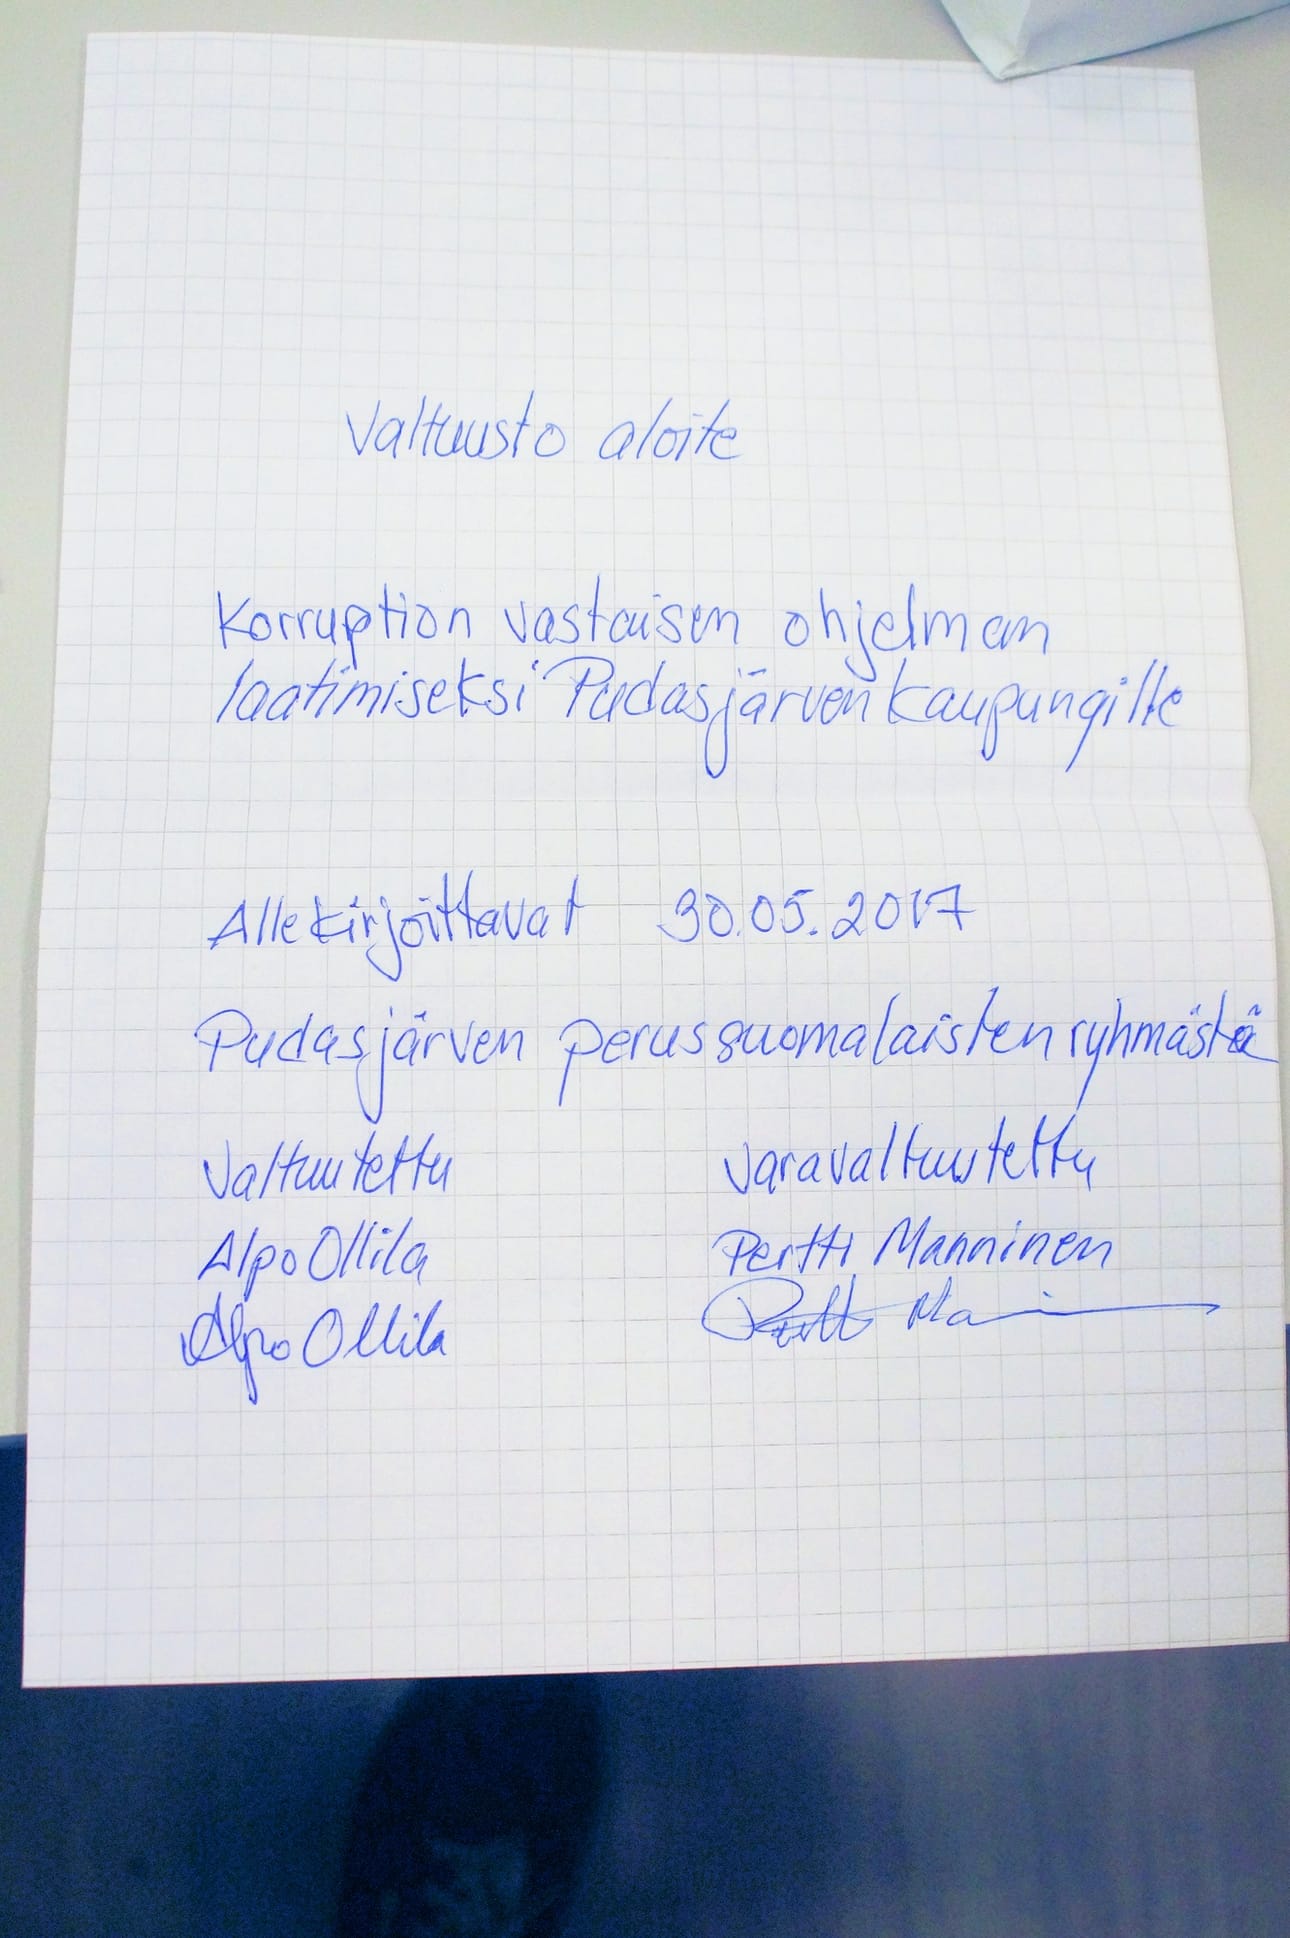 Valtuusto aloite
Korruption vastaisen ohjelman
laatimiseksi Pudasjärven kaupungille
Allekirjoittavat 30.05.2017
Pudasjärven perussuomalaisten ryhmästä
Valtuutettu varavaltuutettu
Alpo Ollila Pertti Manninen
Alpo Ollila